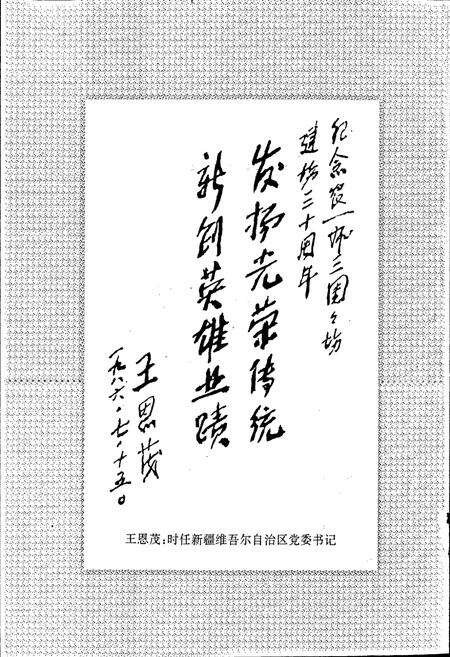 纪念农一师三团团场
建场三十周年
发扬光荣传统
新创英雄业蹟
王恩茂
一九八六·七·十五。
王恩茂：时任新疆维吾尔自治区党委书记